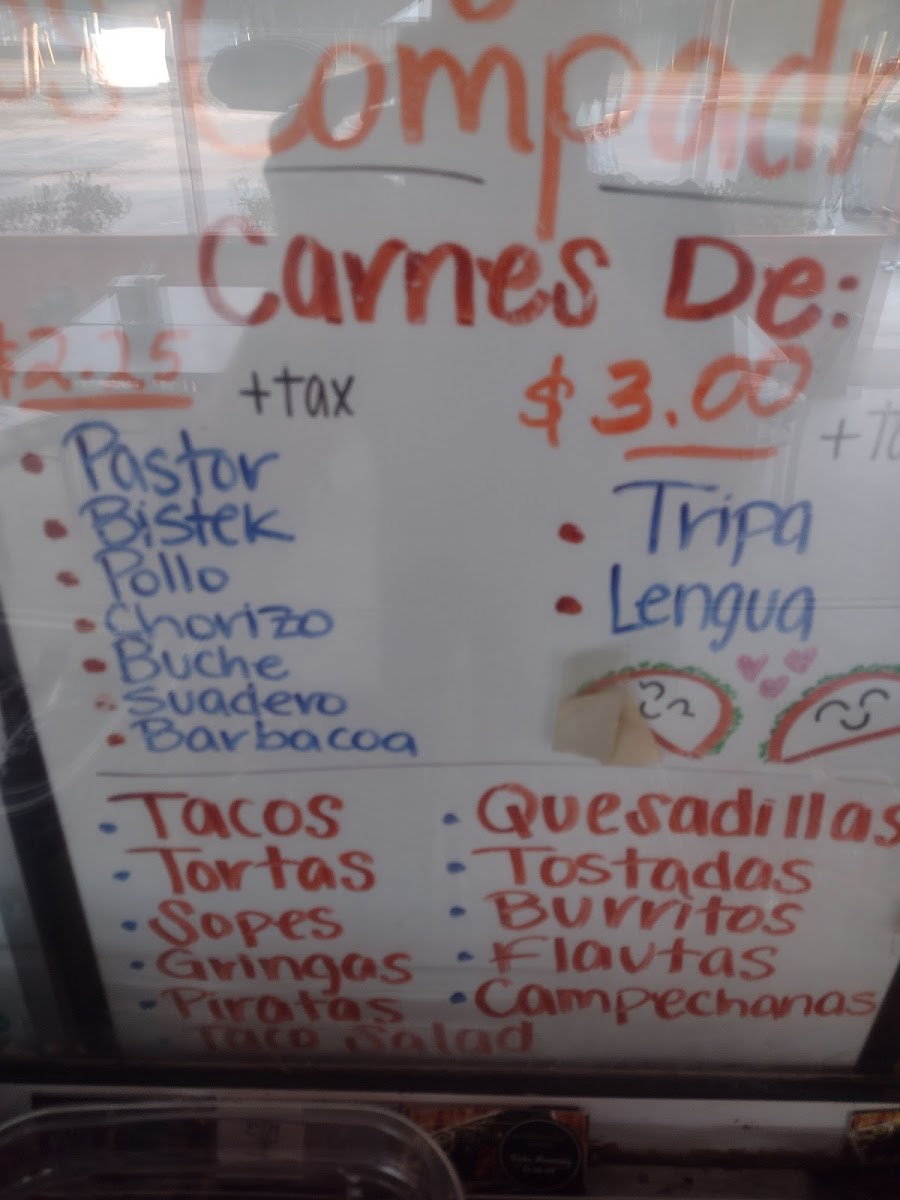 Compad
Carnes De:
$2.25 +tax
• Pastor
• Bistek
• Pollo
• Chorizo
• Buche
• Suadero
• Barbacoa
$3.00
• Tripa
• Lengua
• Tacos
• Tortas
• Sopes
• Gringas
• Piratas
Taco Salad
• Quesadillas
• Tostadas
• Burritos
• Flautas
• Campechanas